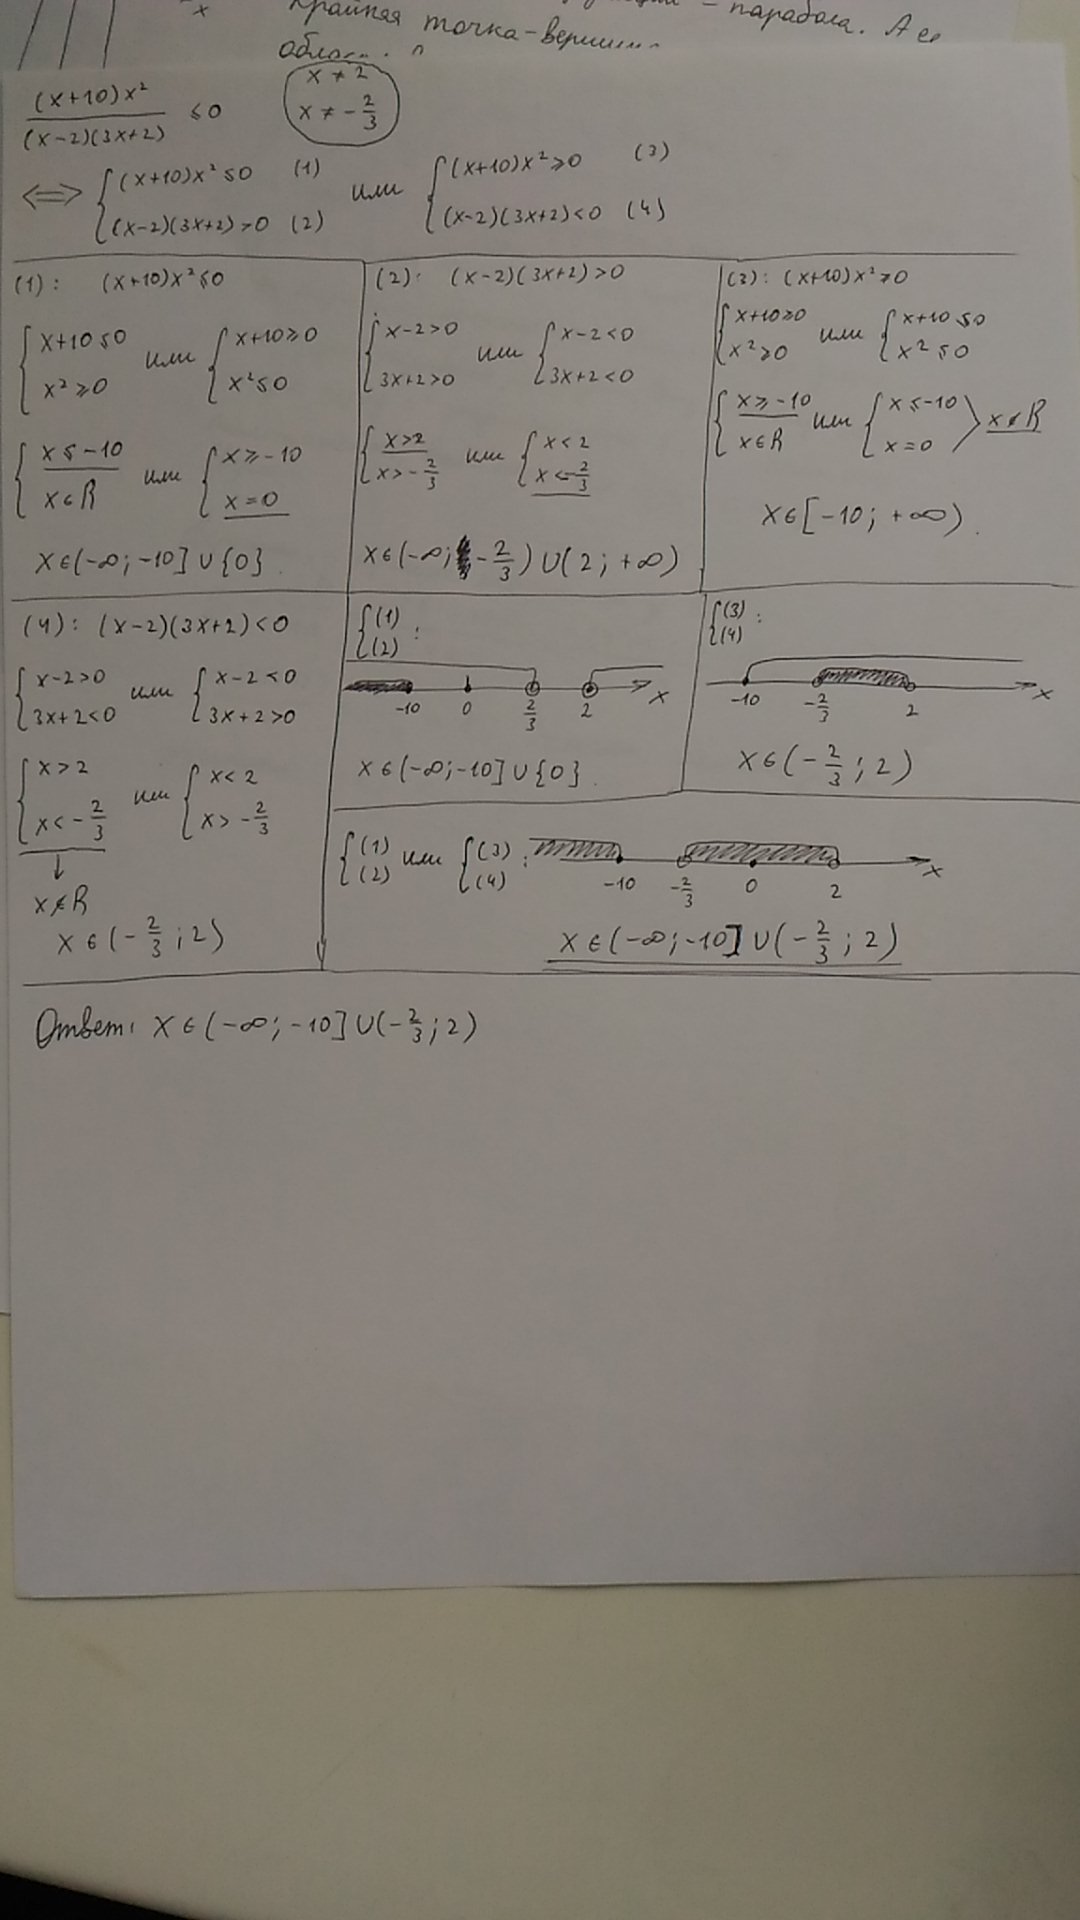 x
Крайняя точка - вершина
– парабола. А ее
(x+10)x² / (x-2)(3x+2) ≤ 0
x ≠ 2
x ≠ -2/3
⟺ { (x+10)x² ≤ 0 (1) или { (x+10)x² ≥ 0 (3)
(x-2)(3x+2) > 0 (2) (x-2)(3x+2) < 0 (4)
(1): (x+10)x² ≤ 0
{ x+10 ≤ 0 или { x+10 ≥ 0
x² ≥ 0 x² ≤ 0
{ x ≤ -10 или { x ≥ -10
x ∈ R x = 0
x ∈ (-∞; -10] ∪ {0}
(2): (x-2)(3x+2) > 0
{ x-2 > 0 или { x-2 < 0
3x+2 > 0 3x+2 < 0
{ x > 2 или { x < 2
x > -2/3 x < -2/3
x ∈ (-∞; -2/3) ∪ (2; +∞)
(3): (x+10)x² ≥ 0
{ x+10 ≥ 0 или { x+10 ≤ 0
x² ≥ 0 x² ≤ 0
{ x ≥ -10 или { x ≤ -10 〉 x ∉ R
x ∈ R x = 0
x ∈ [-10; +∞)
(4): (x-2)(3x+2) < 0
{ x-2 > 0 или { x-2 < 0
3x+2 < 0 3x+2 > 0
{ x > 2 или { x < 2
x < -2/3 x > -2/3
↓
x ∉ R
x ∈ (-2/3; 2)
{ (1)
(2) :
-10 0 2/3 2 x
x ∈ (-∞; -10] ∪ {0}
{ (3)
(4) :
-10 -2/3 2 x
x ∈ (-2/3; 2)
{ (1) или { (3) :
(2) (4)
-10 -2/3 0 2 x
x ∈ (-∞; -10] ∪ (-2/3; 2)
Ответ: x ∈ (-∞; -10] ∪ (-2/3; 2)